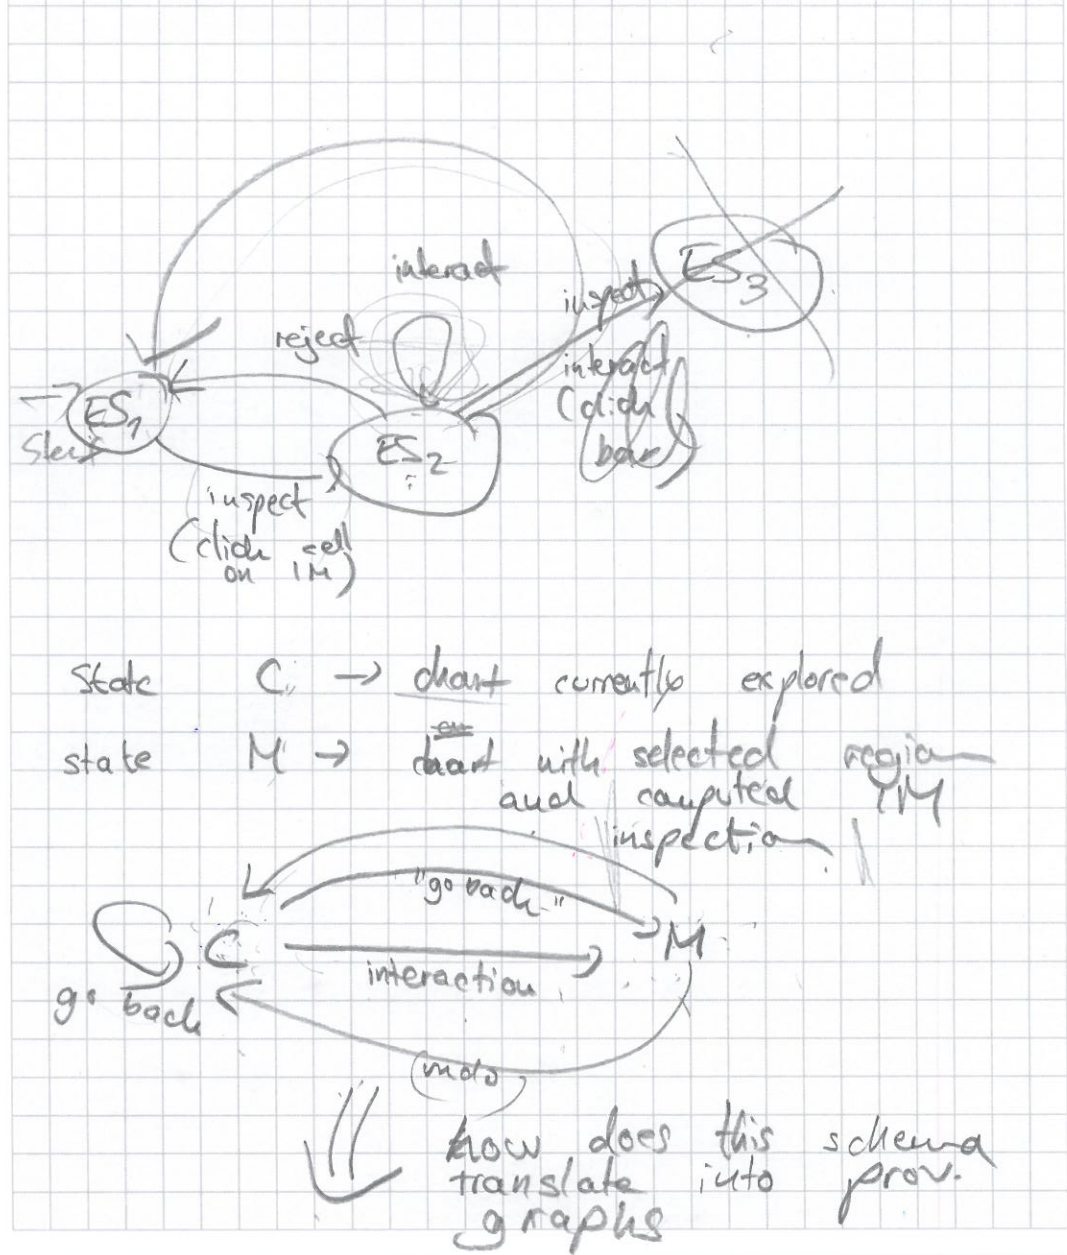 interact
inspect
ES3
reject
interact
(click
bar)
ES1
Start
ES2
inspect
(click cell
on IM)
state C → chart currently explored
state M → chart with selected region
and computed IM
inspection
"go back"
C
M
interaction
go back
(undo)
how does this schema
translate into prov.
graphs